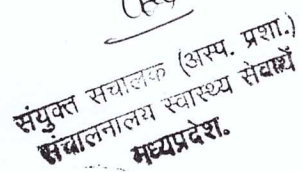 संयुक्त सचालक (अस्प. प्रशा.)
संचालनालय स्वास्थ्य सेवायें
मध्यप्रदेश.